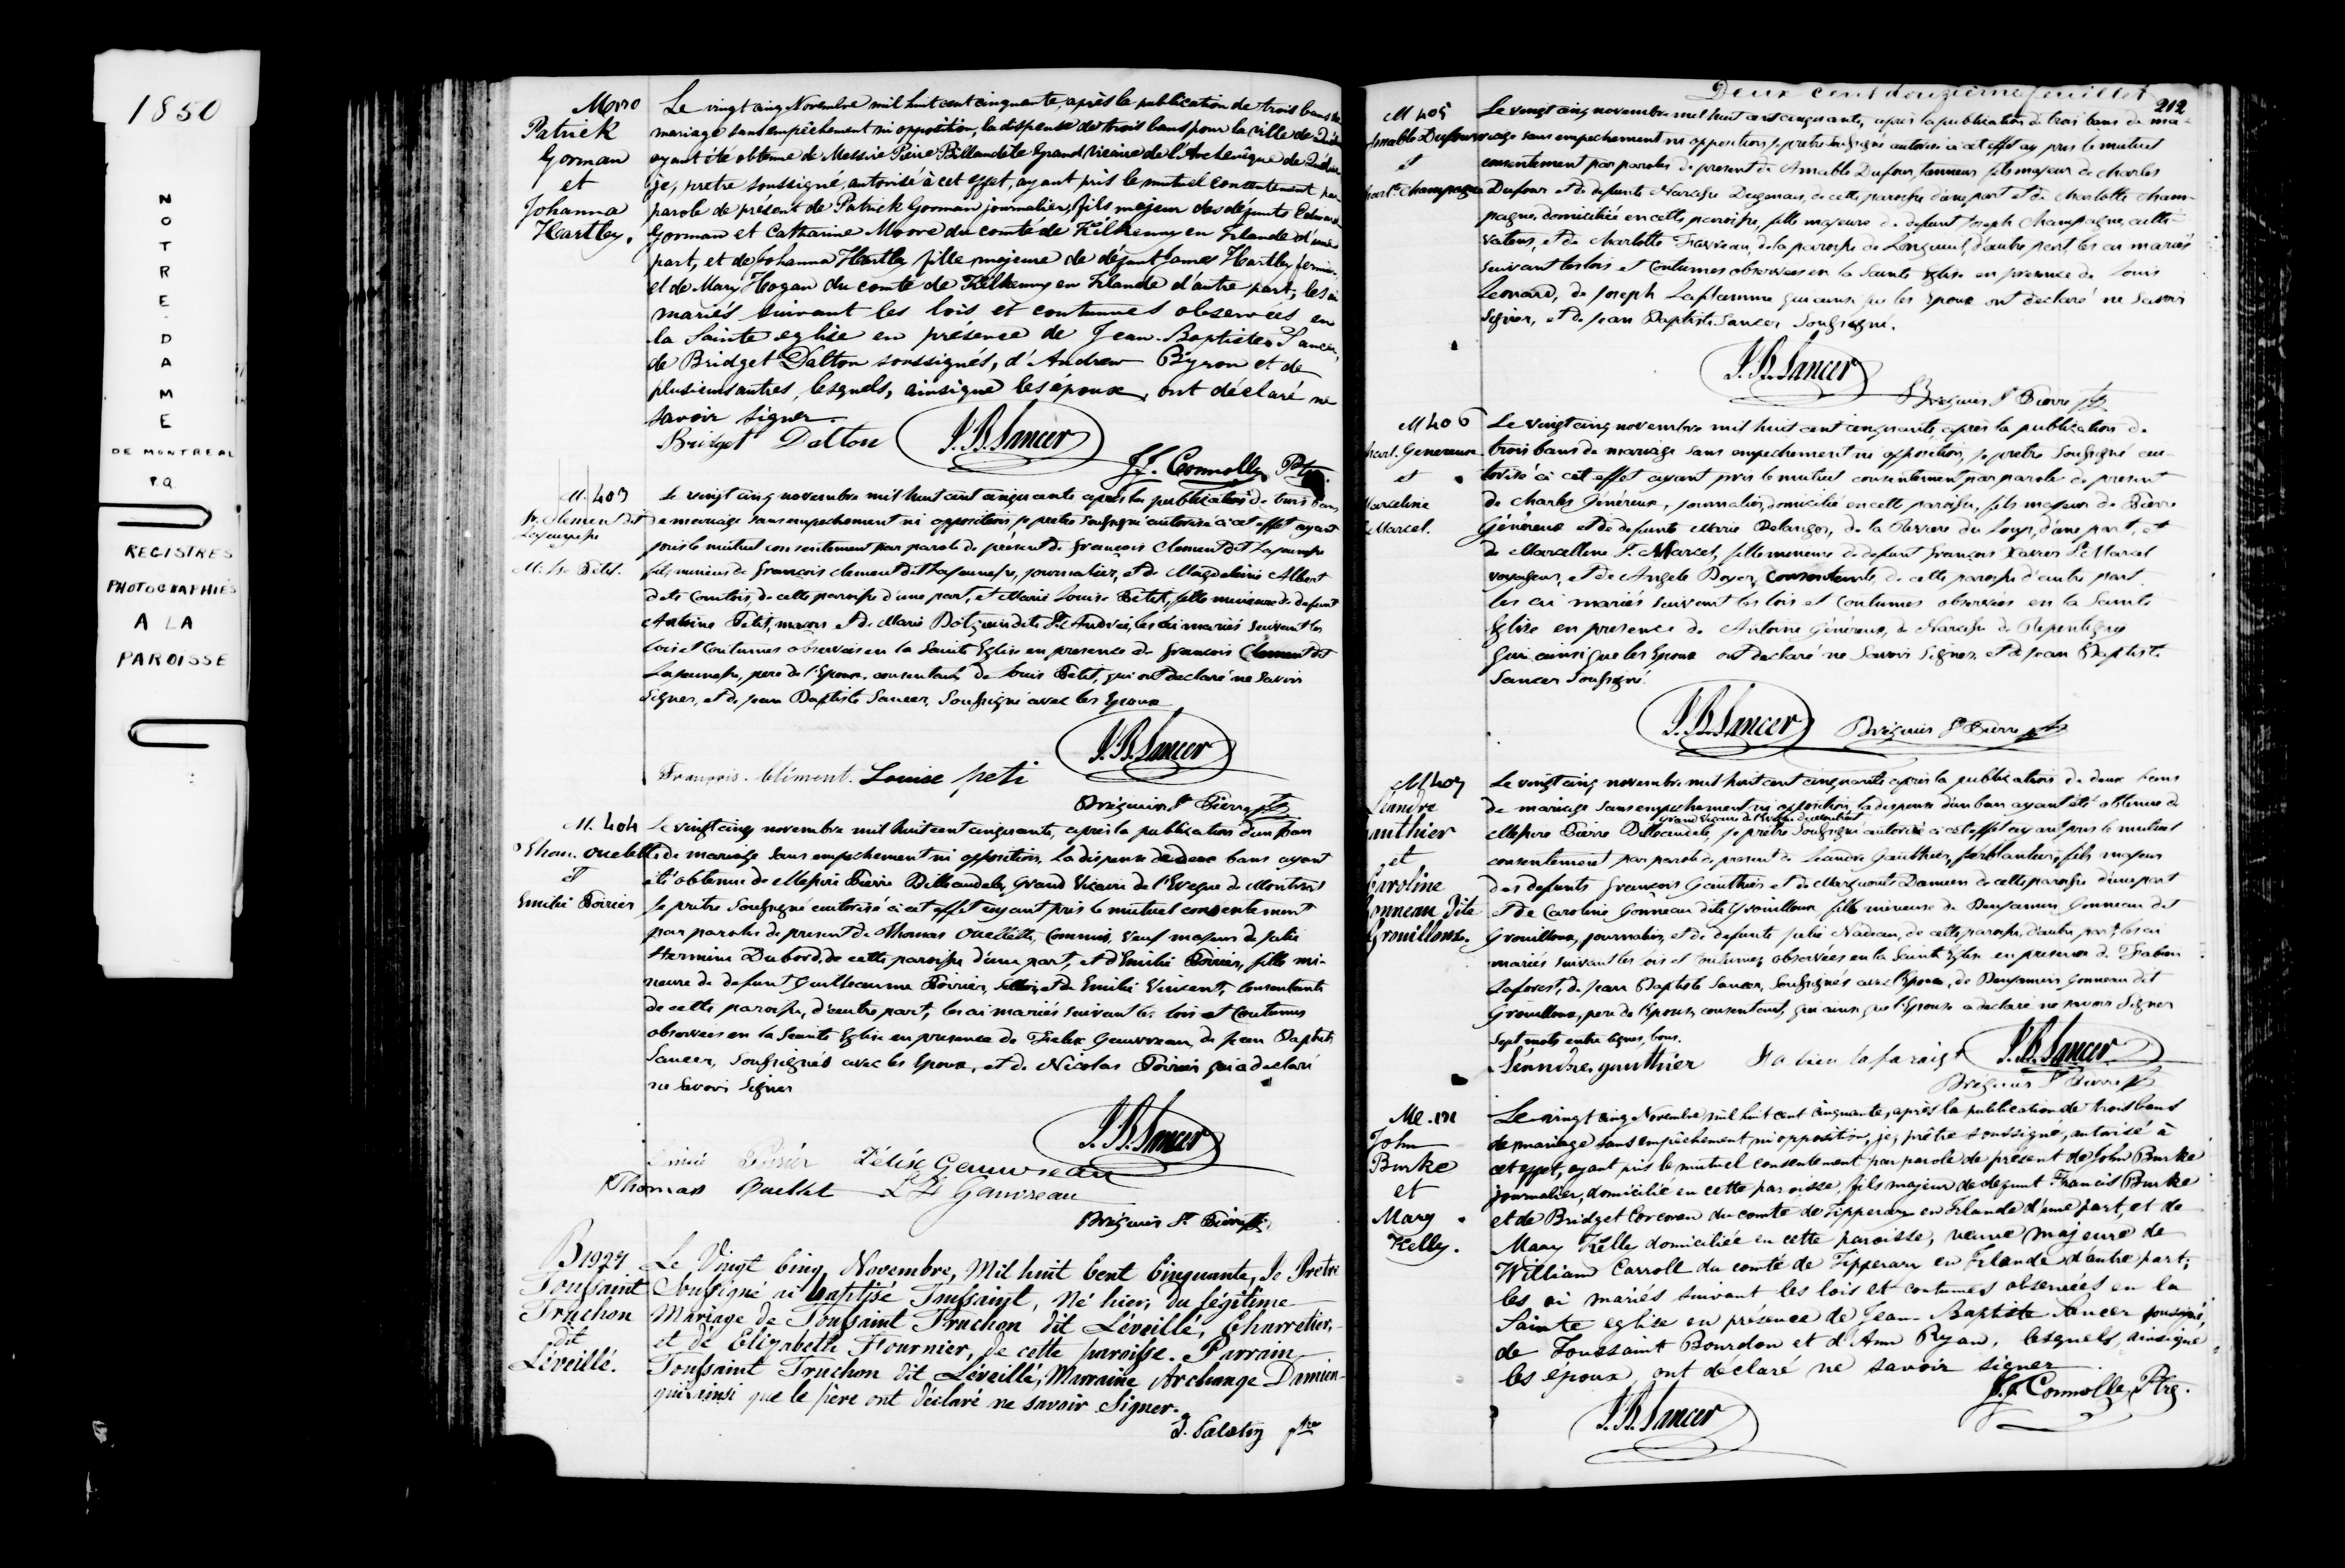 1850
NOTRE-DAME
DE MONTREAL
P.Q.
REGISTRES
PHOTOGRAPHIÉS
A LA
PAROISSE
Patrick
Gorman
et
Johanna
Hartley.
Le vingt cinq Novembre mil huit cent cinquante, après la publication de trois bans de
mariage sans empêchement ni opposition, la dispense de trois bans pour la ville de
ayant été obtenue de Messire Pierre Billaudèle Grand Vicaire de l'Archevêque de
je, prêtre soussigné, autorisé à cet effet, ayant pris le mutuel consentement par
parole de présent de Patrick Gorman journalier, fils majeur des défunts Edmund
Gorman et Catharine Moore du comté de Kilkenny en Irlande d'une
part, et de Johanna Hartley fille majeure de défunt James Hartley fermier
et de Mary Hogan du comté de Kilkenny en Irlande d'autre part; les ai
mariés suivant les lois et coutumes observées en
la Sainte eglise en présence de Jean-Baptiste Sancer,
de Bridget Dalton soussignés, d'Andrew Byron et de
plusieurs autres, lesquels, ainsi que les époux, ont déclaré ne
savoir signer.
Bridget Dalton J.B. Sancer
J.J. Connolly Ptre.
M. 403
fr. Clement dit
Lajeunesse
M. Lse Petit.
Le vingt cinq novembre mil huit cent cinquante après la publication de trois bans
de mariage sans empechement ni opposition je pretre Soussigné autorisé à cet effet ayant
pris le mutuel consentement par parole de présent de françois Clement dit Lajeunesse
fils mineur de françois Clement dit Lajeunesse, journalier, et de Magdeleine Albert
dite Comtois, de cette paroisse d'une part, et Marie Louise Petit, fille mineure de defunt
Antoine Petit, maçon et de Marie dite St André, les ai mariés Suivant les
lois et Coutumes observées en la Sainte Eglise en presence de françois Clement dit
Lajeunesse, pere de l'Epoux, consentant, de Louis Petit, qui ont declaré ne Savoir
Signer, et de Jean Baptiste Sancer, Soussigné avec les Epoux
J.B. Sancer
François. Clément. Louise peti
Bréguier St Pierre ptr
M. 404
Thom. Ouellette
et
Emilie Poirier
Le vingt cinq novembre mil huit cent cinquante, après la publication d'un ban
de mariage Sans empechement ni opposition, la dispense de deux bans ayant
été obtenue de Messire Pierre Billaudele, Grand Vicaire de l'Eveque de Montreal
je pretre Soussigné autorisé à cet effet ayant pris le mutuel consentement
par paroles de present de Thomas Ouellette, Commis, Veuf majeur de Julie
Hermine Dubord, de cette paroisse d'une part, et d'Emilie Poirier, fille mi-
neure de defunt Guilleaume Poirier, Sellier, et de Emilie Vincent, Consentante
de cette paroisse, d'autre part, les ai mariés Suivant les lois et Coutumes
observées en la Sainte Eglise en presence de Felix Gauvreau, de Jean Baptiste
Sancer, Soussignés avec les Epoux, et de Nicolas Poirier qui a declaré
ne Savoir Signer
J.B. Sancer
Poirier Félix Gauvreau
Thomas Ouellet Gauvreau
Bréguier St. Pierre ptr
B 1927
Toussaint
Truchon
dit
Léveillé.
Le Vingt Cinq Novembre, Mil huit Cent Cinquante, Je Prêtre
Soussigné ai baptisé Toussaint, Né hier, du légitime
Mariage de Toussaint Truchon dit Léveillé, Charretier,
et de Elizabeth Fournier, de cette paroisse. Parrain
Toussaint Truchon dit Léveillé, Marraine Archange Damien
qui ainsi que le père ont déclaré ne savoir Signer.
ptre
Deux cent douzieme feuillet
212
M 405
Amable Dufour
et
Charl. Champagne
Le vingt cinq novembre mil huit cent cinquante, après la publication de trois bans de ma-
riage sans empechement ni opposition, je pretre Soussigné autorisé à cet effet ay pris le mutuel
consentement par paroles de present de Amable Dufour, tanneur, fils majeur de Charles
Dufour et de defunte Narcisse de cette paroisse d'une part et de Charlotte Cham-
pagne, domiciliée en cette paroisse, fille majeure de defunt Joseph Champagne, culti-
vateur, et de Charlotte de la paroisse de Longueuil, d'autre part, les ai mariés
Suivant les lois et Coutumes observées en la Sainte Eglise en presence de Louis
Leonard, de Joseph Laflamme qui ainsi que les Epoux ont declaré ne Savoir
Signer, et de Jean Baptiste Sancer Soussigné.
J.B. Sancer
Bréguier St Pierre ptr
M 406
Charl. Genereux
et
Marceline
St Marcel.
Le vingt cinq novembre mil huit cent cinquante, après la publication de
trois bans de mariage Sans empechement ni opposition, je pretre Soussigné au-
torisé à cet effet ayant pris le mutuel consentement par parole de present
de Charles Généreux, journalier, domicilié en cette paroisse, fils majeur de Pierre
Généreux et de defunte Marie de la Riviere du Loup, d'une part, et
de Marcelline St Marcel, fille mineure de defunt françois Xavier St Marcel
voyageur, et de Angele Boyer, Consentante, de cette paroisse d'autre part
les ai mariés Suivant les lois et Coutumes observées en la Sainte
Eglise en presence de Antoine Généreux, de Narcisse de Repentigny
qui ainsi que les Epoux ont declaré ne Savoir Signer, et de Jean Baptiste
Sancer Soussigné.
J.B. Sancer Bréguier St Pierre ptr
M 407
Léandre
Gauthier
et
Caroline
Gonneau dite
Grouilloux.
Le vingt cinq novembre mil huit cent cinquante après la publication de deux bans
de mariage Sans empechement ni opposition, la dispense d'un ban ayant été obtenue de
grand Vicaire de l'Eveque de Montreal
Messire Pierre Billaudele, je prêtre Soussigné autorisé à cet effet ayant pris le mutuel
consentement par parole de present de Léandre Gauthier, ferblantier, fils majeur
des defunts françois Gauthier et de Marguerite Damien de cette paroisse d'une part
et de Caroline Gonneau dite Grouilloux, fille mineure de Benjamin Gonneau dit
Grouilloux, journalier, et de defunte Julie Nadeau, de cette paroisse, d'autre part, les ai
mariés Suivant les lois et Coutumes observées en la Sainte Eglise en presence de Fabien
Laforest, de Jean Baptiste Sancer, Soussignés avec l'Epoux, de Benjamin Gonneau dit
Grouilloux, pere de l'Epouse, consentant, qui ainsi que l'Epouse a declaré ne savoir Signer
Sept mots entre lignes, bons.
Léandre gauthier J.B. Sancer
Bréguier St Pierre ptr
John
Burke
et
Mary
Kelly.
Le vingt cinq Novembre mil huit cent cinquante, après la publication de trois bans
de mariage sans empêchement ni opposition, je, prêtre soussigné, autorisé à
cet effet, ayant pris le mutuel consentement par parole de présent de John Burke
journalier, domicilié en cette paroisse, fils majeur de defunt Francis Burke
et de Bridget Corcoran du comté de Tipperary en Irlande d'une part, et de
Mary Kelly domiciliée en cette paroisse, veuve majeure de
William Carroll du comté de Tipperary en Irlande d'autre part;
les ai mariés suivant les lois et coutumes observées en la
Sainte eglise en présence de Jean-Baptiste Sancer soussigné,
de Toussaint Bourdon et d'Ann Ryan, lesquels, ainsi que
les époux ont déclaré ne savoir signer.
J.J. Connolly, Ptre.
J.B. Sancer